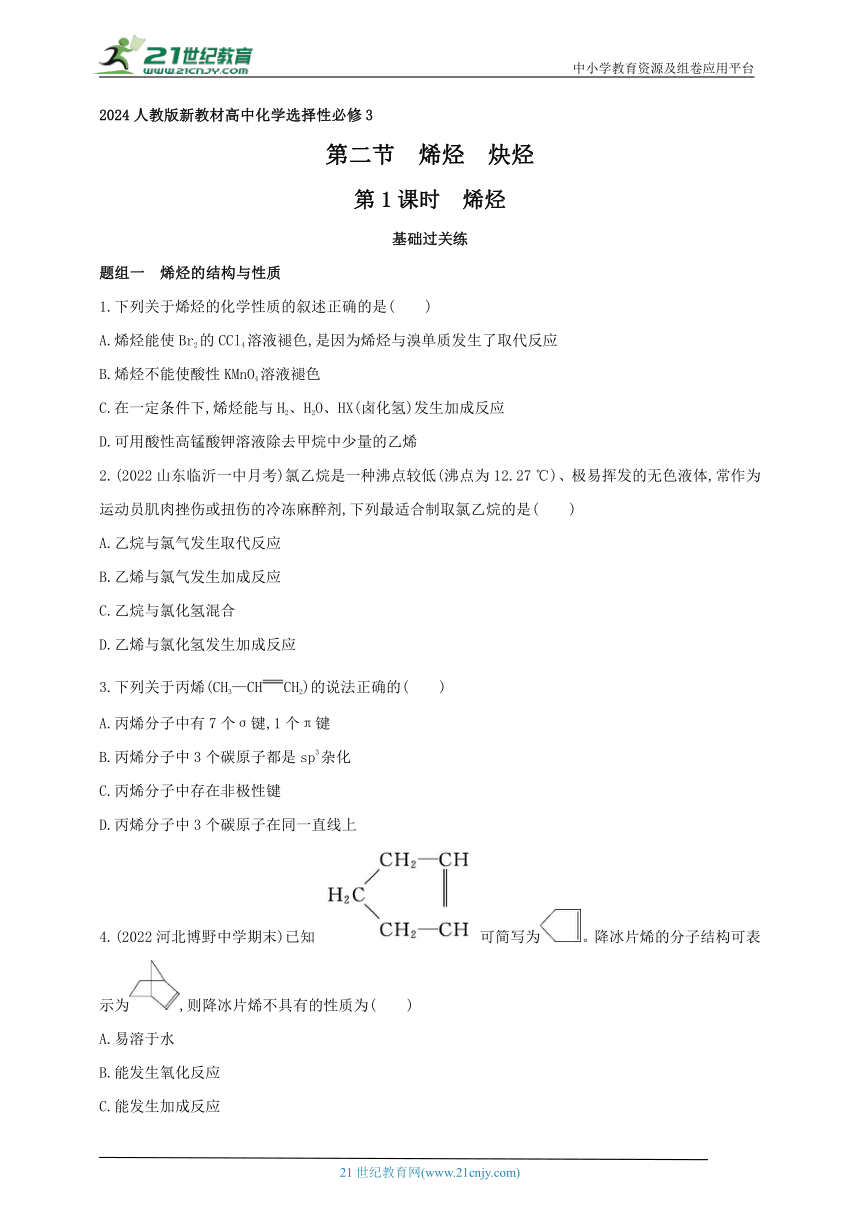 21世纪教育
WWW.21CNJY.COM
中小学教育资源及组卷应用平台
2024人教版新教材高中化学选择性必修3
第二节 烯烃 炔烃
第1课时 烯烃
基础过关练
题组一 烯烃的结构与性质
1.下列关于烯烃的化学性质的叙述正确的是( )
A.烯烃能使Br2的CCl4溶液褪色,是因为烯烃与溴单质发生了取代反应
B.烯烃不能使酸性KMnO4溶液褪色
C.在一定条件下,烯烃能与H2、H2O、HX(卤化氢)发生加成反应
D.可用酸性高锰酸钾溶液除去甲烷中少量的乙烯
2.(2022山东临沂一中月考)氯乙烷是一种沸点较低(沸点为12.27 ℃)、极易挥发的无色液体,常作为
运动员肌肉挫伤或扭伤的冷冻麻醉剂,下列最适合制取氯乙烷的是( )
A.乙烷与氯气发生取代反应
B.乙烯与氯气发生加成反应
C.乙烷与氯化氢混合
D.乙烯与氯化氢发生加成反应
3.下列关于丙烯(CH3—CH═CH2)的说法正确的( )
A.丙烯分子中有7个σ键,1个π键
B.丙烯分子中3个碳原子都是sp3杂化
C.丙烯分子中存在非极性键
D.丙烯分子中3个碳原子在同一直线上
CH2—CH
H2C
CH2—CH
4.(2022河北博野中学期末)已知 可简写为 。降冰片烯的分子结构可表
示为 ,则降冰片烯不具有的性质为( )
A.易溶于水
B.能发生氧化反应
C.能发生加成反应
21世纪教育网(www.21cnjy.com)